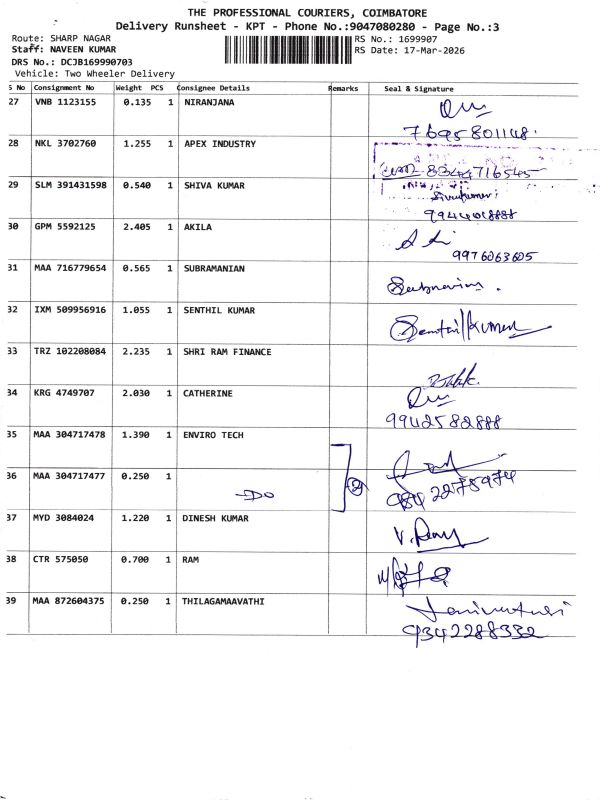 THE PROFESSIONAL COURIERS, COIMBATORE
Delivery Runsheet - KPT - Phone No.:9047080280 - Page No.:3
Route: SHARP NAGAR RS No.: 1699907
Staff: NAVEEN KUMAR RS Date: 17-Mar-2026
DRS No.: DCJB169990703
Vehicle: Two Wheeler Delivery
S No Consignment No Weight PCS Consignee Details Remarks Seal & Signature
27 VNB 1123155 0.135 1 NIRANJANA
7695801148.
28 NKL 3702760 1.255 1 APEX INDUSTRY
8344716545
29 SLM 391431598 0.540 1 SHIVA KUMAR Sivakumar
9944018888
30 GPM 5592125 2.405 1 AKILA
9976063605
31 MAA 716779654 0.565 1 SUBRAMANIAN
32 IXM 509956916 1.055 1 SENTHIL KUMAR Senthil Kumar
33 TRZ 102208084 2.235 1 SHRI RAM FINANCE
34 KRG 4749707 2.030 1 CATHERINE
9942582888
35 MAA 304717478 1.390 1 ENVIRO TECH
36 MAA 304717477 0.250 1 -Do (2) 984 2275974
37 MYD 3084024 1.220 1 DINESH KUMAR
38 CTR 575050 0.700 1 RAM
39 MAA 872604375 0.250 1 THILAGAMAAVATHI
9342288332